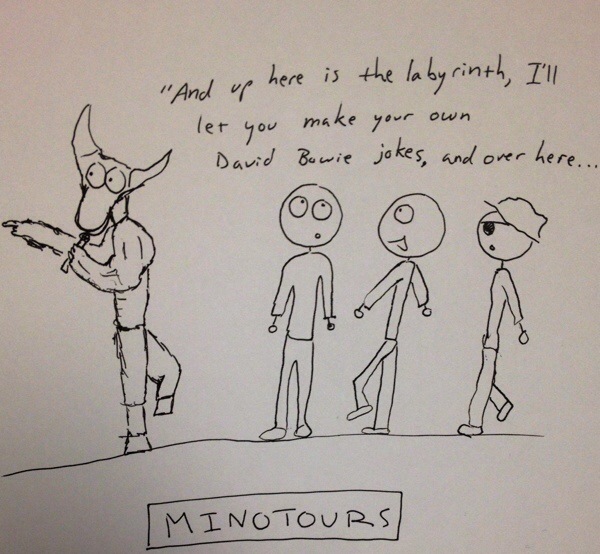 "And up here is the labyrinth, I'll
let you make your own
David Bowie jokes, and over here...
MINOTOURS